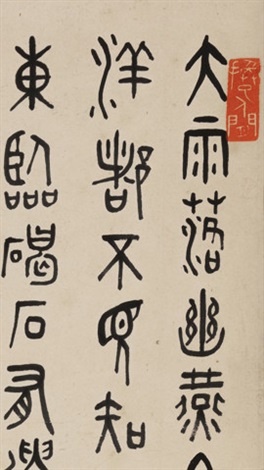 大雨落幽燕
洋都不見知
東臨碣石有